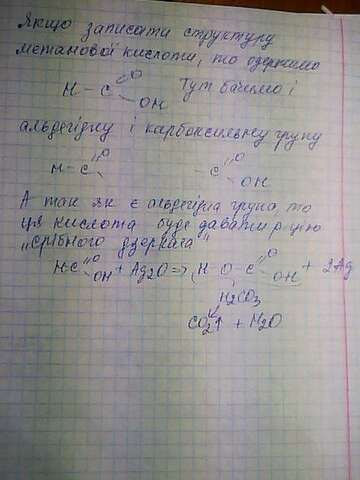 Якщо записати структуру
метанової кислоти, то одержимо
H – C =O – OH Тут бачимо і
альдегідну і карбоксильну групу
H – C =O – C =O OH
А так як є альдегідна група, то
ця кислота буде давати р-цію
"срібного дзеркала"
H-C =O OH + Ag2O => H O – C =O OH + 2Ag
H2CO3
CO2↑ + H2O